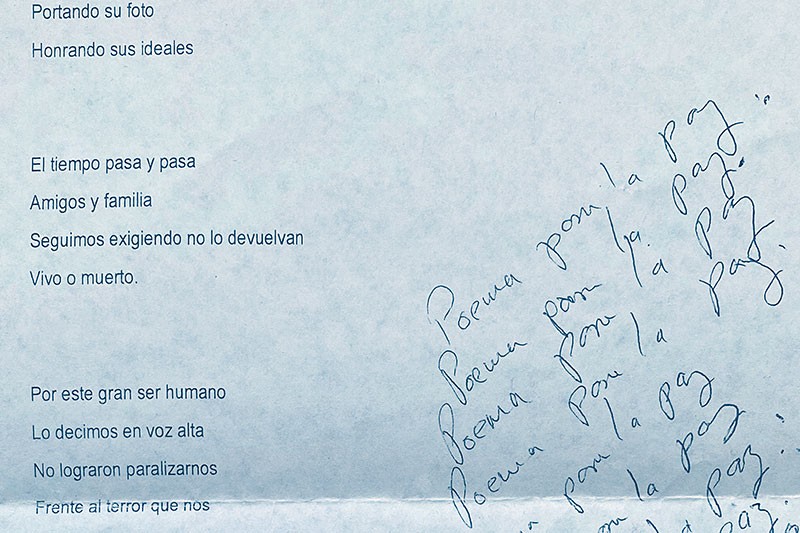 Portando su foto
Honrando sus ideales
El tiempo pasa y pasa
Amigos y familia
Seguimos exigiendo no lo devuelvan
Vivo o muerto.
Por este gran ser humano
Lo decimos en voz alta
No lograron paralizarnos
Frente al terror que nos
Poema para la paz.
Poema para la paz.
Poema para la paz
Poema para la paz.
para la paz
la paz
la paz.
paz.